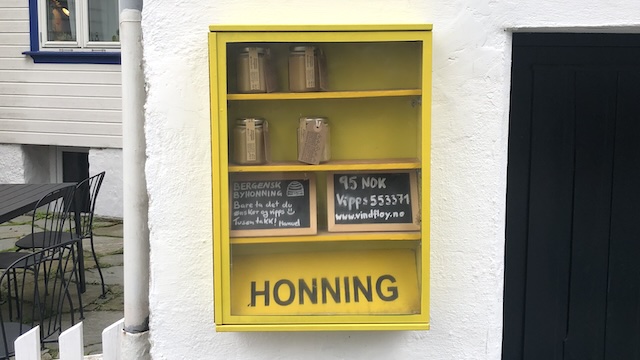 BERGENSK
BYHONNING
Bare ta det du
ønsker og vipps
Tusen takk!
95 NOK
Vipps 553371
www.vindfløy.no
HONNING